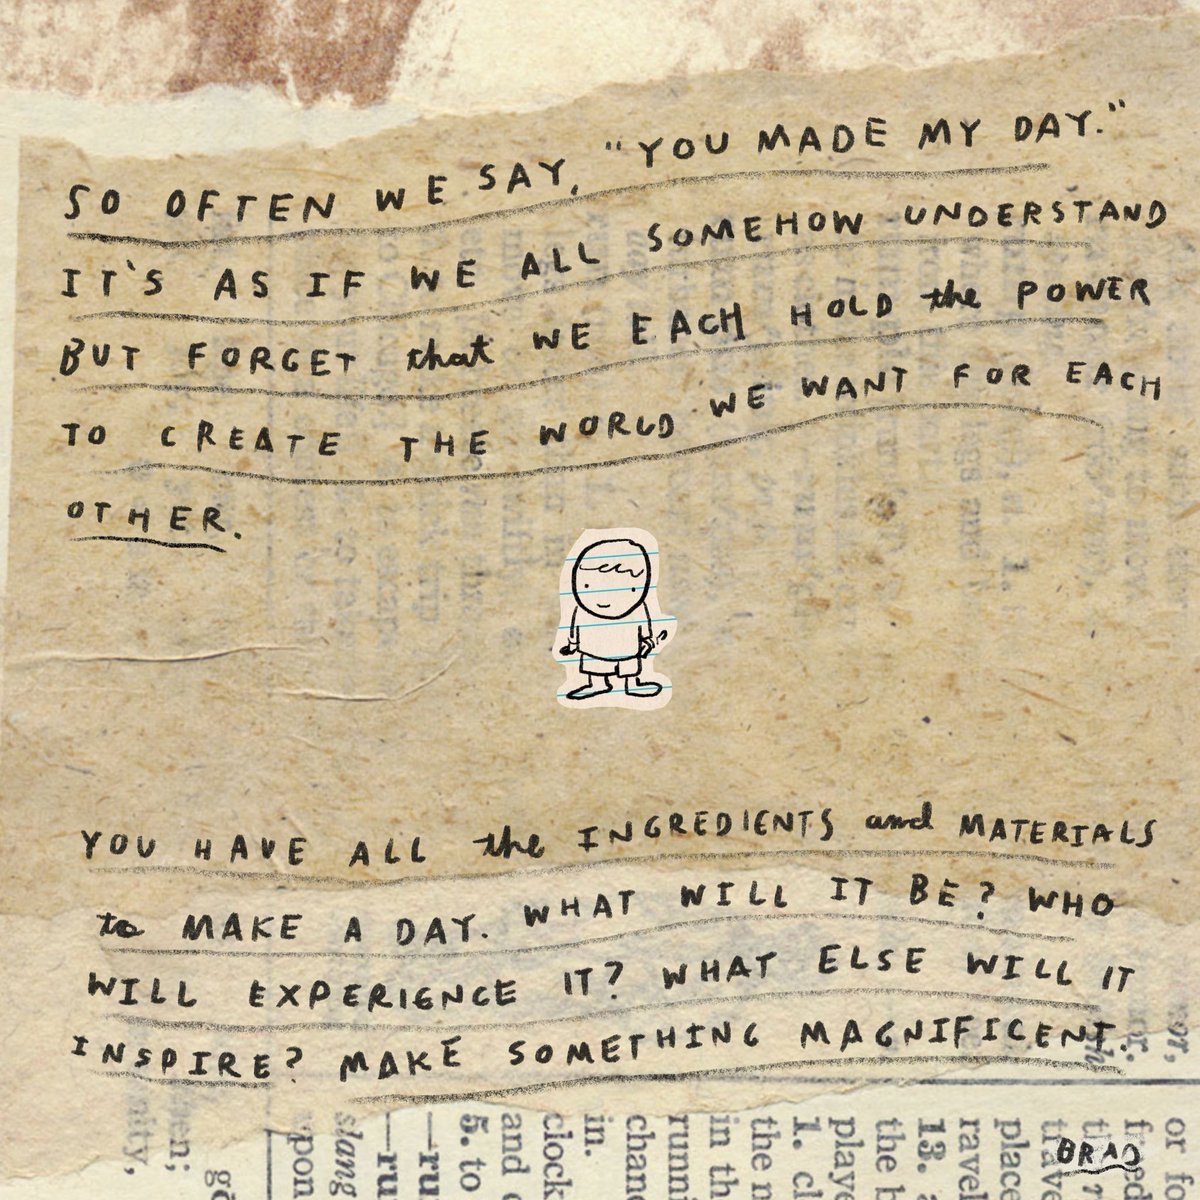 SO OFTEN WE SAY, "YOU MADE MY DAY."
IT'S AS IF WE ALL SOMEHOW UNDERSTAND
BUT FORGET that WE EACH HOLD the POWER
TO CREATE THE WORLD WE WANT FOR EACH
OTHER.
YOU HAVE ALL the INGREDIENTS and MATERIALS
to MAKE A DAY. WHAT WILL IT BE? WHO
WILL EXPERIENCE IT? WHAT ELSE WILL IT
INSPIRE? MAKE SOMETHING MAGNIFICENT.
or fo
place
ravel
13. a
the b
playe
1. cl
the n
in th
runni
chanc
in.
clock
and
5. to
—ru
—ru
slang
upon
BRAD